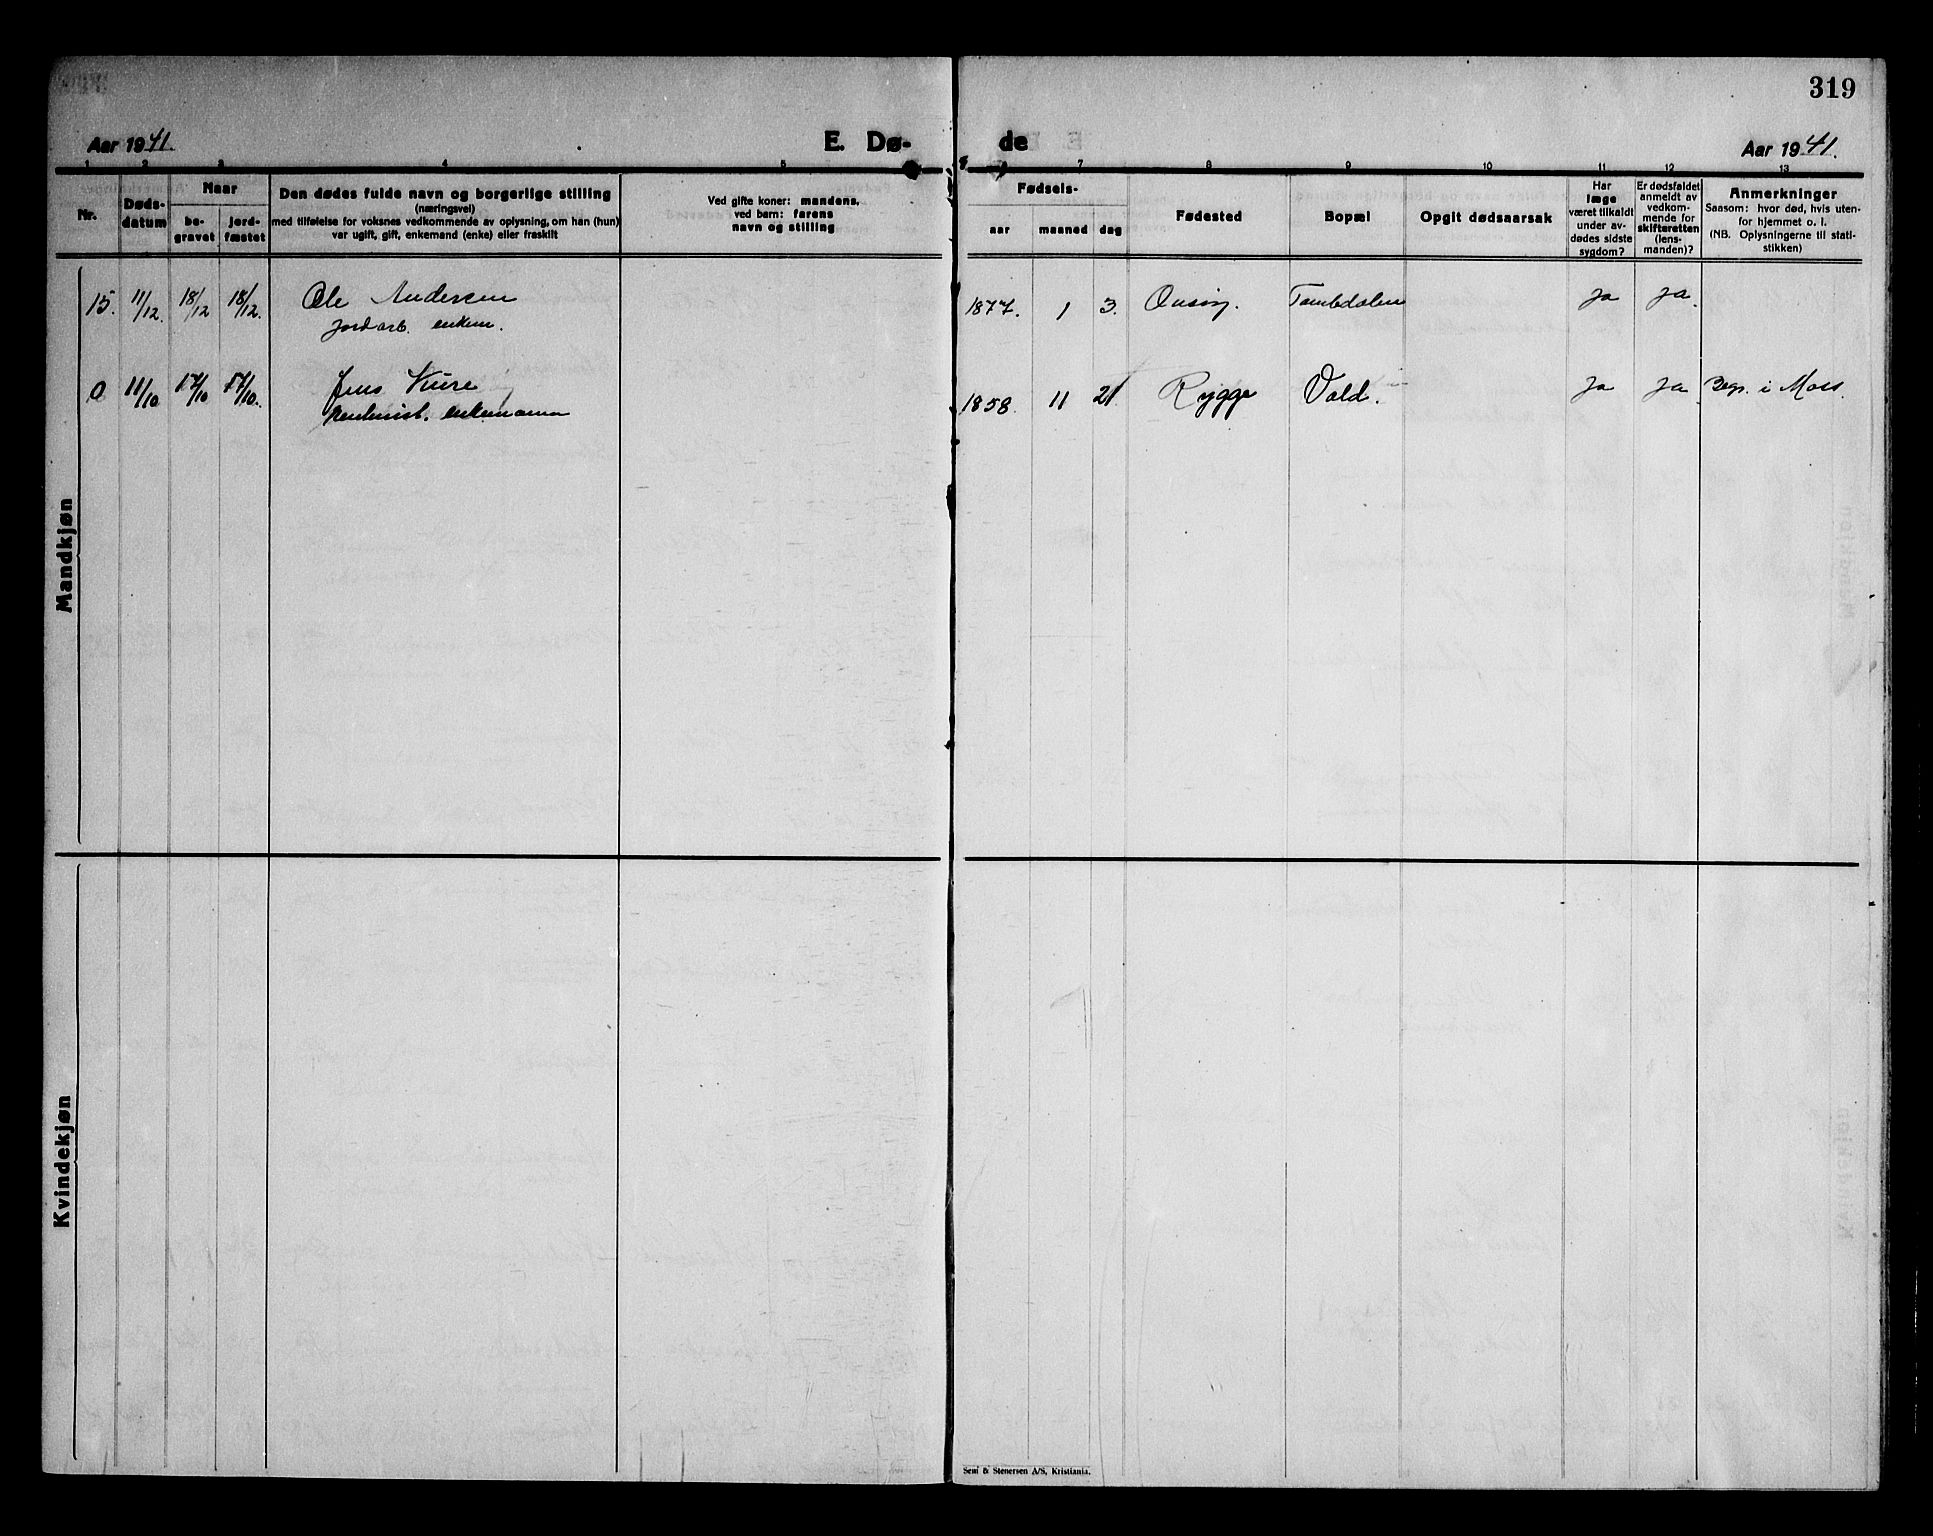 319
Aar 1941.
E. Dø-
de
Aar 1941.
1 2 3 4 5 6 7 8 9 10 11 12 13
Nr.
Døds-
datum
Naar
be-
gravet
jord-
fæstet
Den dødes fulde navn og borgerlige stilling
(næringsvei)
med tilføielse for voksnes vedkommende av oplysning, om han (hun)
var ugift, gift, enkemand (enke) eller fraskilt
Ved gifte koner: mandens,
ved barn: farens
navn og stilling
Fødsels-
aar
maaned
dag
Fødested
Bopæl
Opgit dødsaarsak
Har
læge
været tilkaldt
under av-
dødes sidste
sygdom?
Er dødsfaldet
anmeldt av
vedkom-
mende for
skifteretten
(lens-
manden)?
Anmerkninger
Saasom: hvor død, hvis uten-
for hjemmet o. l.
(NB. Oplysningerne til stati-
stikken)
Mandkjøn
15. 11/12. 18/12 18/12. Ole Andersen 1877. 1 3. Onsøy. Tombdalen Ja Ja.
jordarb. enkem.
0 11/10 17/10 17/10. Jens 1858. 11 21 Rygge Vold. Ja Ja Begr. i Moss.
enkemann
Kvindekjøn
Sem & Stenersen A/S, Kristiania.